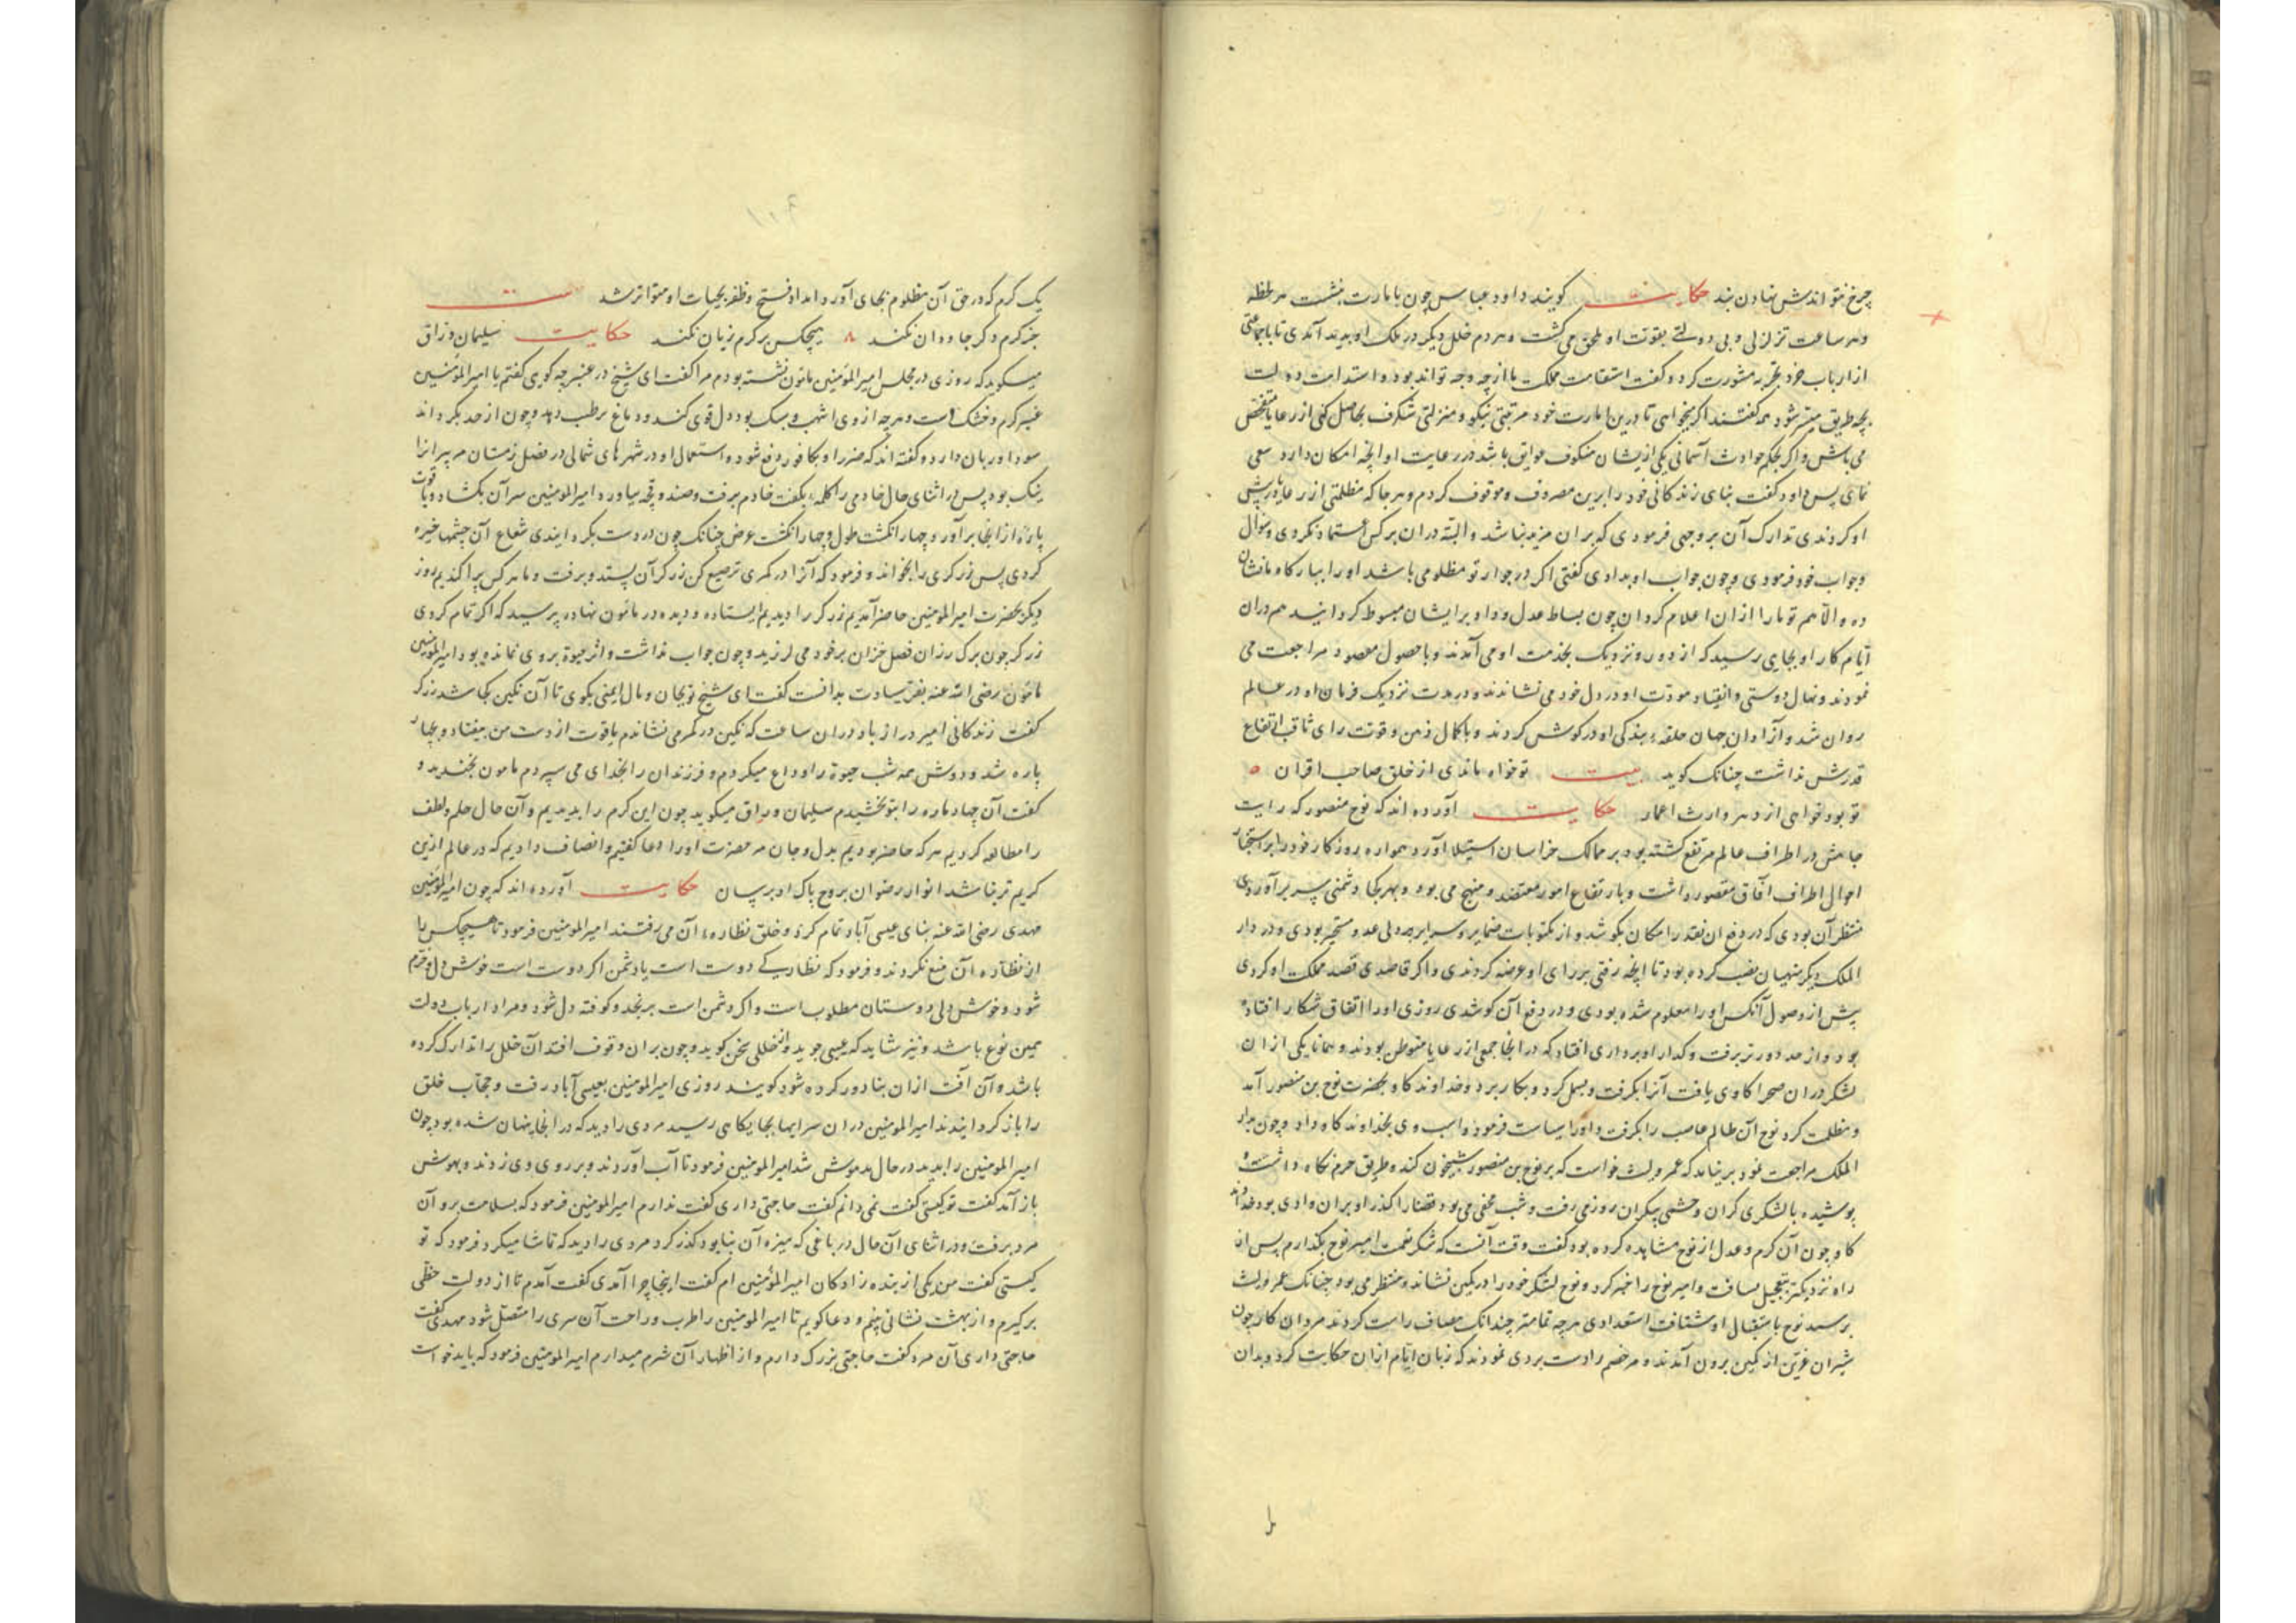 چرخ نتواندش نهادن بند حکایت کویند داود عباس چون بامارت بنشست هر لحظه
وهر ساعت تزلزلی وبی دولتی بقوت او ملحق می کشت وهر دم خلل دیکر در ملک او پدید آمدی تا با جماعتی
از ارباب خرد وتجربه مشورت کرد وکفت استقامت مملکت ما از چه وجه تواند بود واستدامت دولت
بچه طریق میسر شود همه کفتند اکر میخواهی تا درین امارت خود مرتبتی نیکو ومنزلتی شکرف بحاصل کنی از رعایا متفحص
می باش واکر بحکم حوادث آسمانی یکی ازیشان منکوف عوایق باشد در رعایت او آنچه امکان دارد سعی
نمای پس داود کفت بنای زندکانی خود را برین مصروف وموقوف کردم وهر جا که مظلمتی از رعایا پیش
او کردندی تدارک آن بر وجهی فرمودی که بران مزید نباشد والبته دران بر کس اعتماد نکردی وسؤال
وجواب خود فرمودی وچون جواب او بدادی کفتی اکر در جوار تو مظلومی باشد او را ببارکاه ما نشان
ده والا هم تو ما را ازان اعلام کردان چون بساط عدل وداد بر ایشان مبسوط کردانید هم دران
ایام کار او بجایی رسید که از دور ونزدیک بخدمت او می آمدند وبا حصول مقصود مراجعت می
نمودند ونهال دوستی وانقیاد مودت او در دل خود می نشاندند ودر مدت نزدیک فرمان او در عالم
روان شد وآزادان جهان حلقه بندکی او در کوش کردند وبا کمال ذهن وقوت رای ثاقب ارتفاع
قدرش نداشت چنانک کوید بیت تو خواه ماندی از خلق صاحب اقران
تو بود خواهی از دهر وارث اعمار حکایت آورده اند که نوح منصور که رایت
جاهش در اطراف عالم مرتفع کشته بود بر ممالک خراسان استیلا آورد همواره روزکار خود را بر استخبار
احوال اطراف آفاق مقصور داشت وبارتفاع امور معتضد ومنهج می بود وبهر کجا دشمنی سر بر آوردی
منتظر آن بودی که در دفع ان بقدر امکان بکوشد واز مکتوبات ضمایر وسرایر هر ولی عدو متحیر بودی ودر دار
الملک دیکر منهیان نصب کرده بود تا آنچه رفتی بر رای او عرضه کردندی واکر قاصدی قصد مملکت او کردی
پیش از وصول آنکس او را معلوم شده بودی ودر دفع آن کوشدی روزی او را اتفاق شکار افتاده
بود واز حد دورتر برفت وکذار او بر داری افتاد که در انجا جمعی از رعایا متوطن بودند وهمانا یکی از ان
لشکر دران صحرا کاوی یافت آنرا بکرفت وبسمل کرد وبکار برد وخداوند کاو بحضرت نوح بن منصور آمد
ومظلمت کرد نوح آن ظالم غاصب را بکرفت واو را سیاست فرمود واسب وی بخداوند کاو داد وچون بدار
الملک مراجعت نمود بر نیامد که عمرو لیث خواست که بر نوح بن منصور شبیخون کند وطریق حرم نکاه داشته
پوشیده با لشکری کران وحشمی بیکران روز می رفت وشب مخفی می بود قضا را کذر او بران وادی بود خداوند
کاو چون آن کرم وعدل از نوح مشاهده کرده بود کفت وقت آنست که شکر نعمت امیر نوح بکذارم پس ان
راه نزدیکتر بتعجیل بسافت وامیر نوح را خبر کرد ونوح لشکر خود را در کمین نشاند ومنتظر می بود چنانک عمرو لیث
برسید نوح باستقبال او شتافت استعدادی هر چه تمامتر چندانک مصاف راست کردند مردان کار چون
شیران عرین از کمین برون آمدند وهر خصم را دست بردی نمودند که زبان ایام ازان حکایت کرد وبدان
یک کرم که در حق آن مظلوم بجای آورد امداد فتح وظفر بحیات او متواتر شد بیت
جز کرم وکر جاودان نکند هیچکس بر کرم زیان نکند حکایت سلیمان وراق
میکوید که روزی در مجلس امیر المؤمنین مامون نشسته بودم مرا کفت ای شیخ در عنبر چه کویی کفتم یا امیر المؤمنین
عنبر کرم وخشک است وهر چه از وی اشهب وسبک بود دل قوی کند ودماغ رطب دهد وچون از حد بکرداند
سودا ور بان دارد وکفته اند که ضرر او بکافور دفع شود واستعمال او در شهرهای شمالی در فصل زمستان مر پیر انرا
نیک بود پس در اثنای حال خادمی را کلمه بکفت خادم برفت وصندوقچه بیاورد امیر المؤمنین سر آن بکشاد ویاقوت
پاره از انجا بر آورد چهار انکشت طول وچهار انکشت عرض چنانک چون در دست بکردانیدی شعاع آن چشمها خیره
کردی پس زرکری را بخواند وفرمود که آنرا در کمری ترصیع کن زرکر آن بستد وبرفت وما هر کس پراکندیم روز
دیکر بحضرت امیر المومنین حاضر آمدیم زرکر را دیدیم ایستاده ودیده در مامون نهاده پرسید که اکر تمام کردی
زرکر چون برک رزان فصل خزان بر خود می لرزید وچون جواب نداشت واثر حیوة بر وی نمانده بود امیر المؤمنین
مامون رضی الله عنه بفر سیادت بدانست کفت ای شیخ تو بجان ومال ایمنی بکوی تا آن نکین کجا شد زرکر
کفت زندکانی امیر دراز باد دران ساعت که نکین در کمر می نشاندم یاقوت از دست من بیفتاد وبچهار
پاره شد ودوش همه شب حیوة را وداع میکردم وفرزندان را بخدای می سپردم مامون بخندید و
کفت آن چهار پاره را بتو بخشیدم سلیمان وراق میکوید چون این کرم را بدیدیم وآن حال حلم ولطف
را مطالعه کردیم هر که حاضر بودیم بدل وجان مر حضرت او را دعا کفتیم وانصاف دادیم که در عالم ازین
کریم تر نباشد انوار رضوان بروح پاک او برسان حکایت آورده اند که چون امیر المؤمنین
مهدی رضی الله عنه بنای عیسی آباد تمام کرد وخلق نظاره آن می رفتند امیر المومنین فرمود تا هیچکس را
از نظاره آن منع نکردند وفرمود که نظارکی دوست است یا دشمن اکر دوست است خوش دل وخرم
شود وخوش دلی دوستان مطلوب است واکر دشمن است برنجد وکوفته دل شود ومراد ارباب دولت
همین نوع باشد ونیز شاید که عیبی جوید واز خللی سخن کوید وچون بران وقوف افتد آن خلل را تدارک کرده
باشد وآن آفت ازان بنا دور کرده شود کویند روزی امیر المومنین بعیسی آباد رفت وحجاب خلق
را باز کردانیدند امیر المومنین دران سرایها بجایکاهی رسید مردی را دید که در انجا پنهان شده بود چون
امیر المومنین را بدید در حال بدهوش شد امیر المومنین فرمود تا آب آوردند وبر روی وی زدند وبهوش
باز آمد کفت تو کیستی کفت نمی دانم کفت حاجتی داری کفت ندارم امیر المومنین فرمود که بسلامت برو آن
مرد برفت ودر اثنای آن حال در باغی که میزه آن بنا بود کذر کرد مردی را دید که تماشا میکرد فرمود که تو
کیستی کفت من یکی از بنده زادکان امیر المؤمنین ام کفت اینجا چرا آمدی کفت آمدم تا از دولت حظی
برکیرم واز بهشت نشانی بینم ودعا کویم تا امیر المومنین را طرب وراحت آن سری را متصل شود مهدی کفت
حاجتی داری آن مرد کفت حاجتی بزرک دارم واز اظهار آن شرم میدارم امیر المومنین فرمود که باید خواست